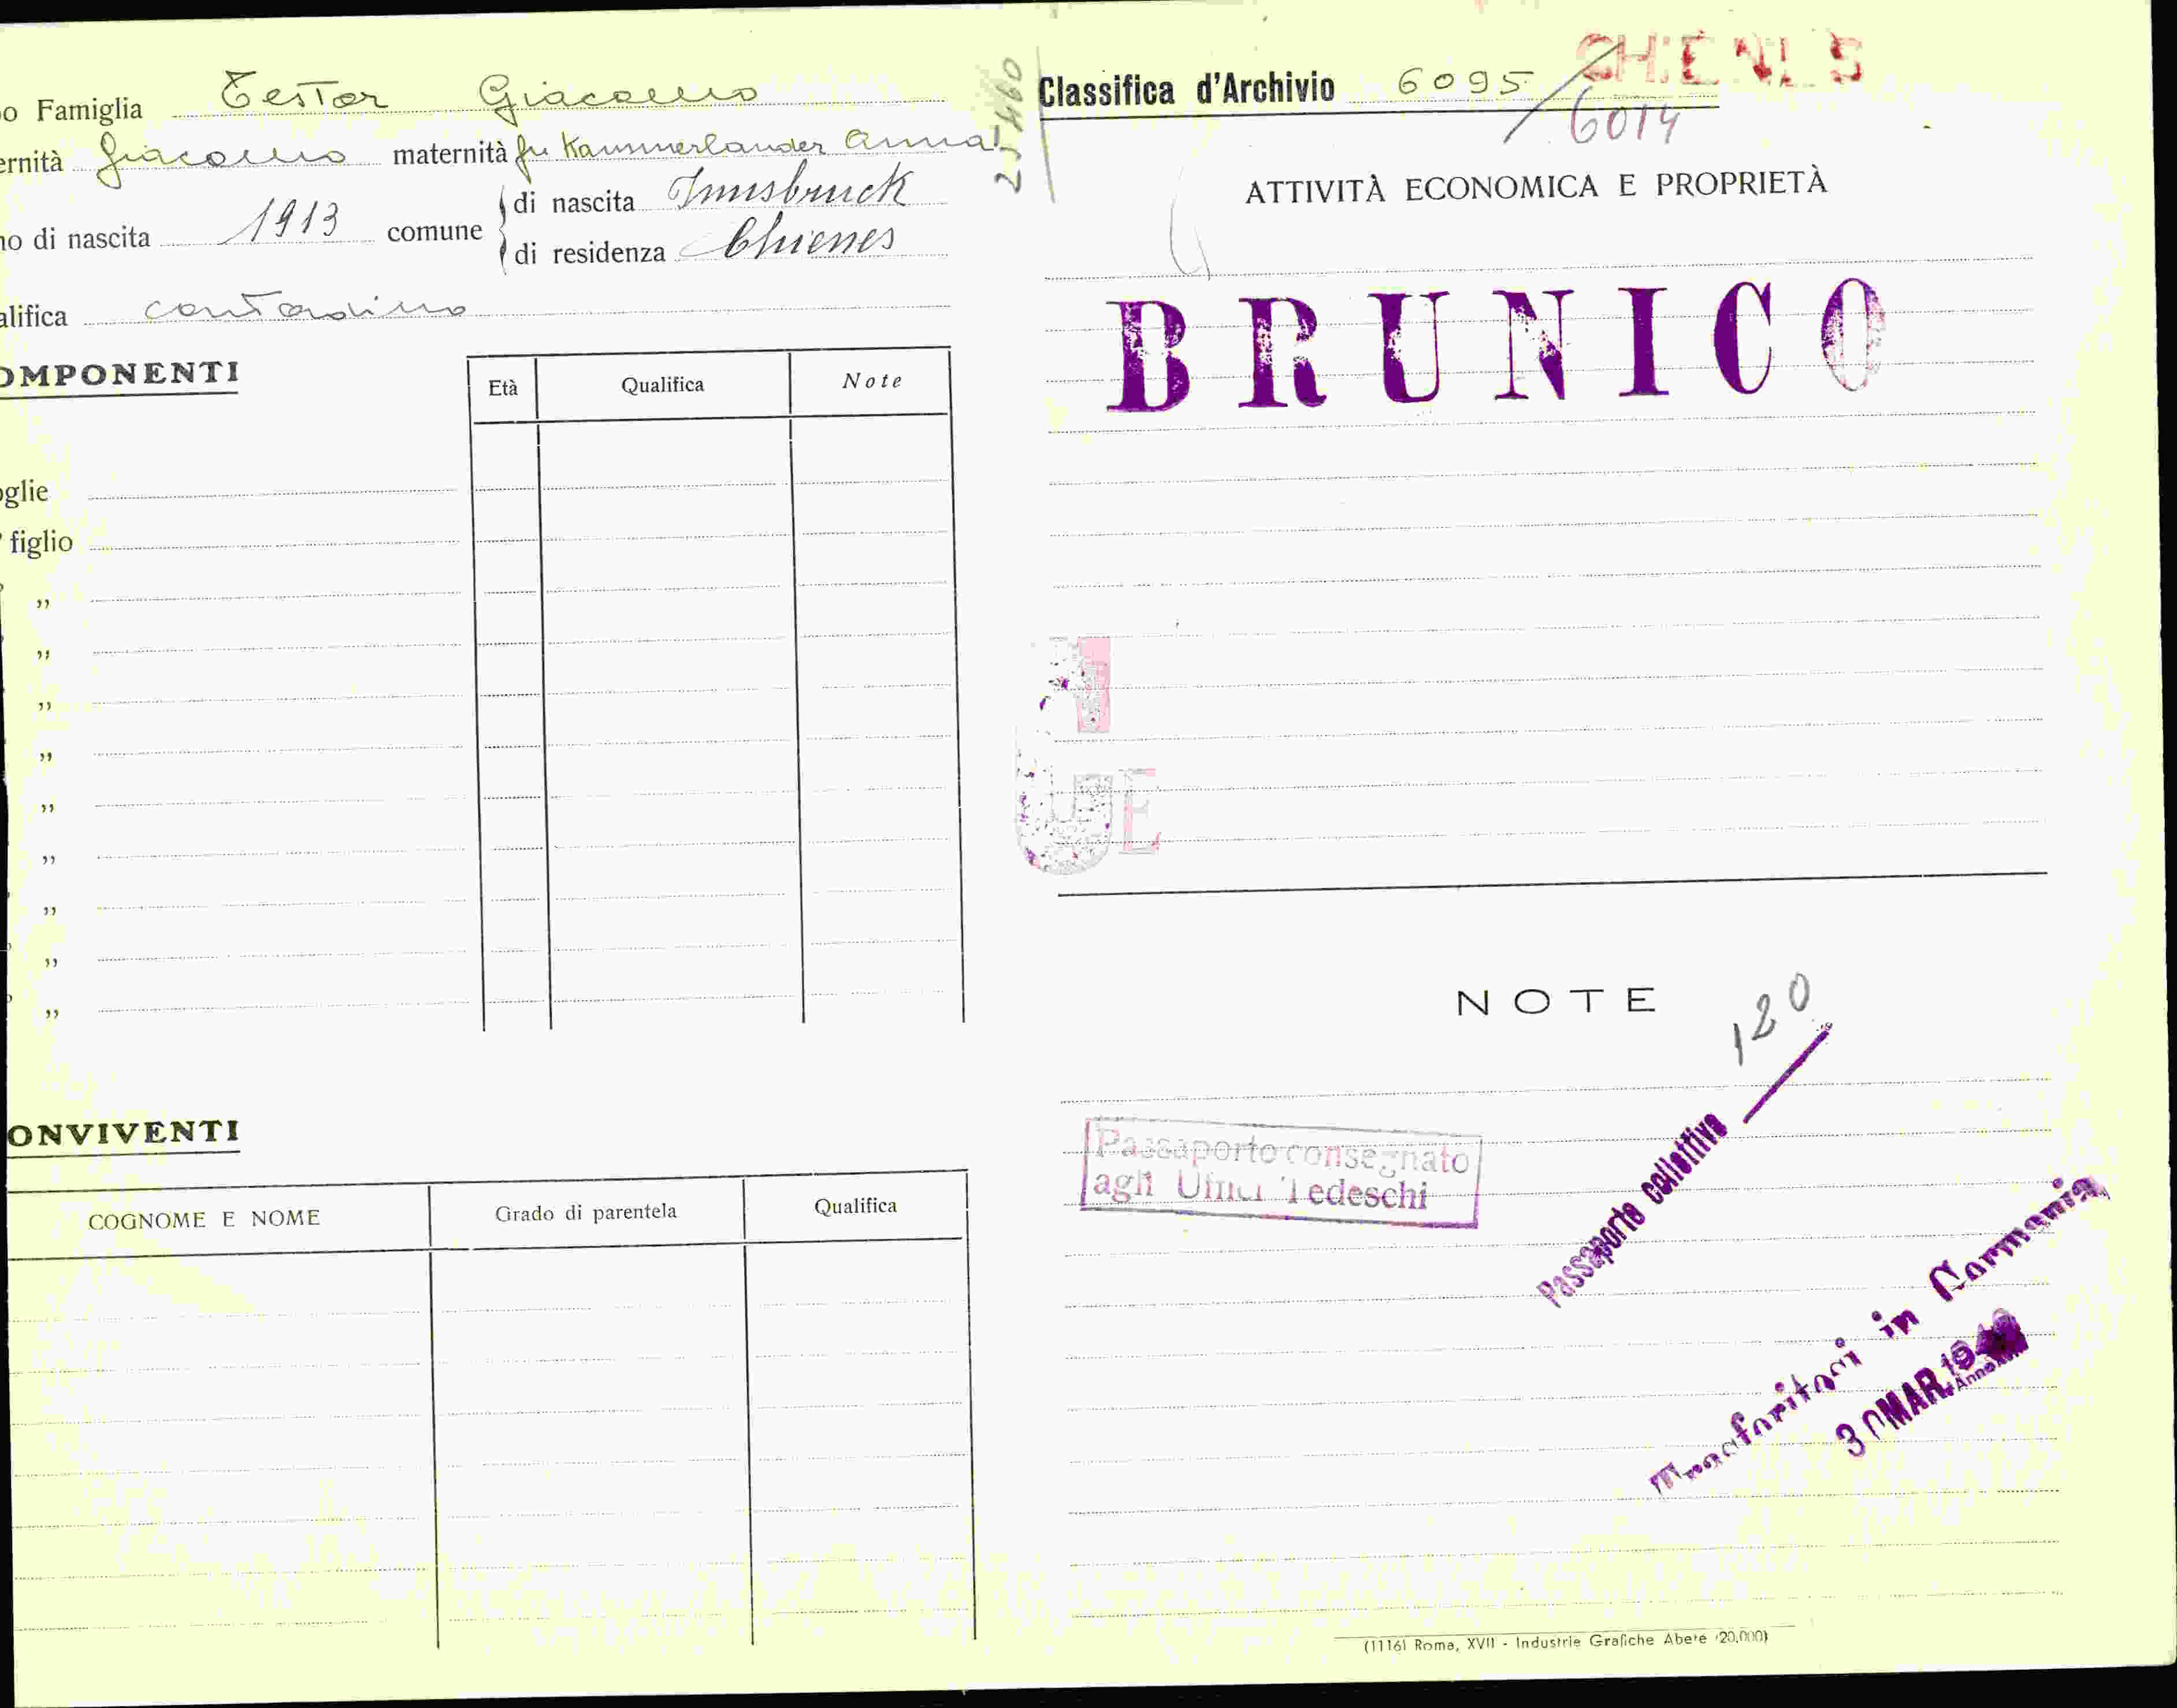 o Famiglia Testor Giacomo
ernità Giacomo maternità fu Kammerlander Anna
no di nascita 1913 comune di nascita Innsbruck
di residenza Chienes
alifica contadino
OMPONENTI
Età Qualifica Note
oglie
figlio
"
"
"
"
"
"
"
"
"
ONVIVENTI
COGNOME E NOME Grado di parentela Qualifica
Classifica d'Archivio 6095/6014
CHIENES
ATTIVITÀ ECONOMICA E PROPRIETÀ
BRUNICO
UE
NOTE
120
Passaporto consegnato
agli Uffici Tedeschi
Passaporto collettivo
Trasferitosi in Germania
30 MAR. 19
Anno
(1116) Roma, XVII - Industrie Grafiche Abete (20.000)